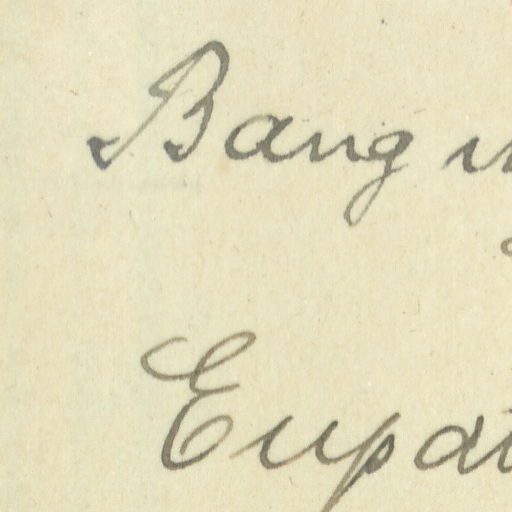 Bang
Eupat